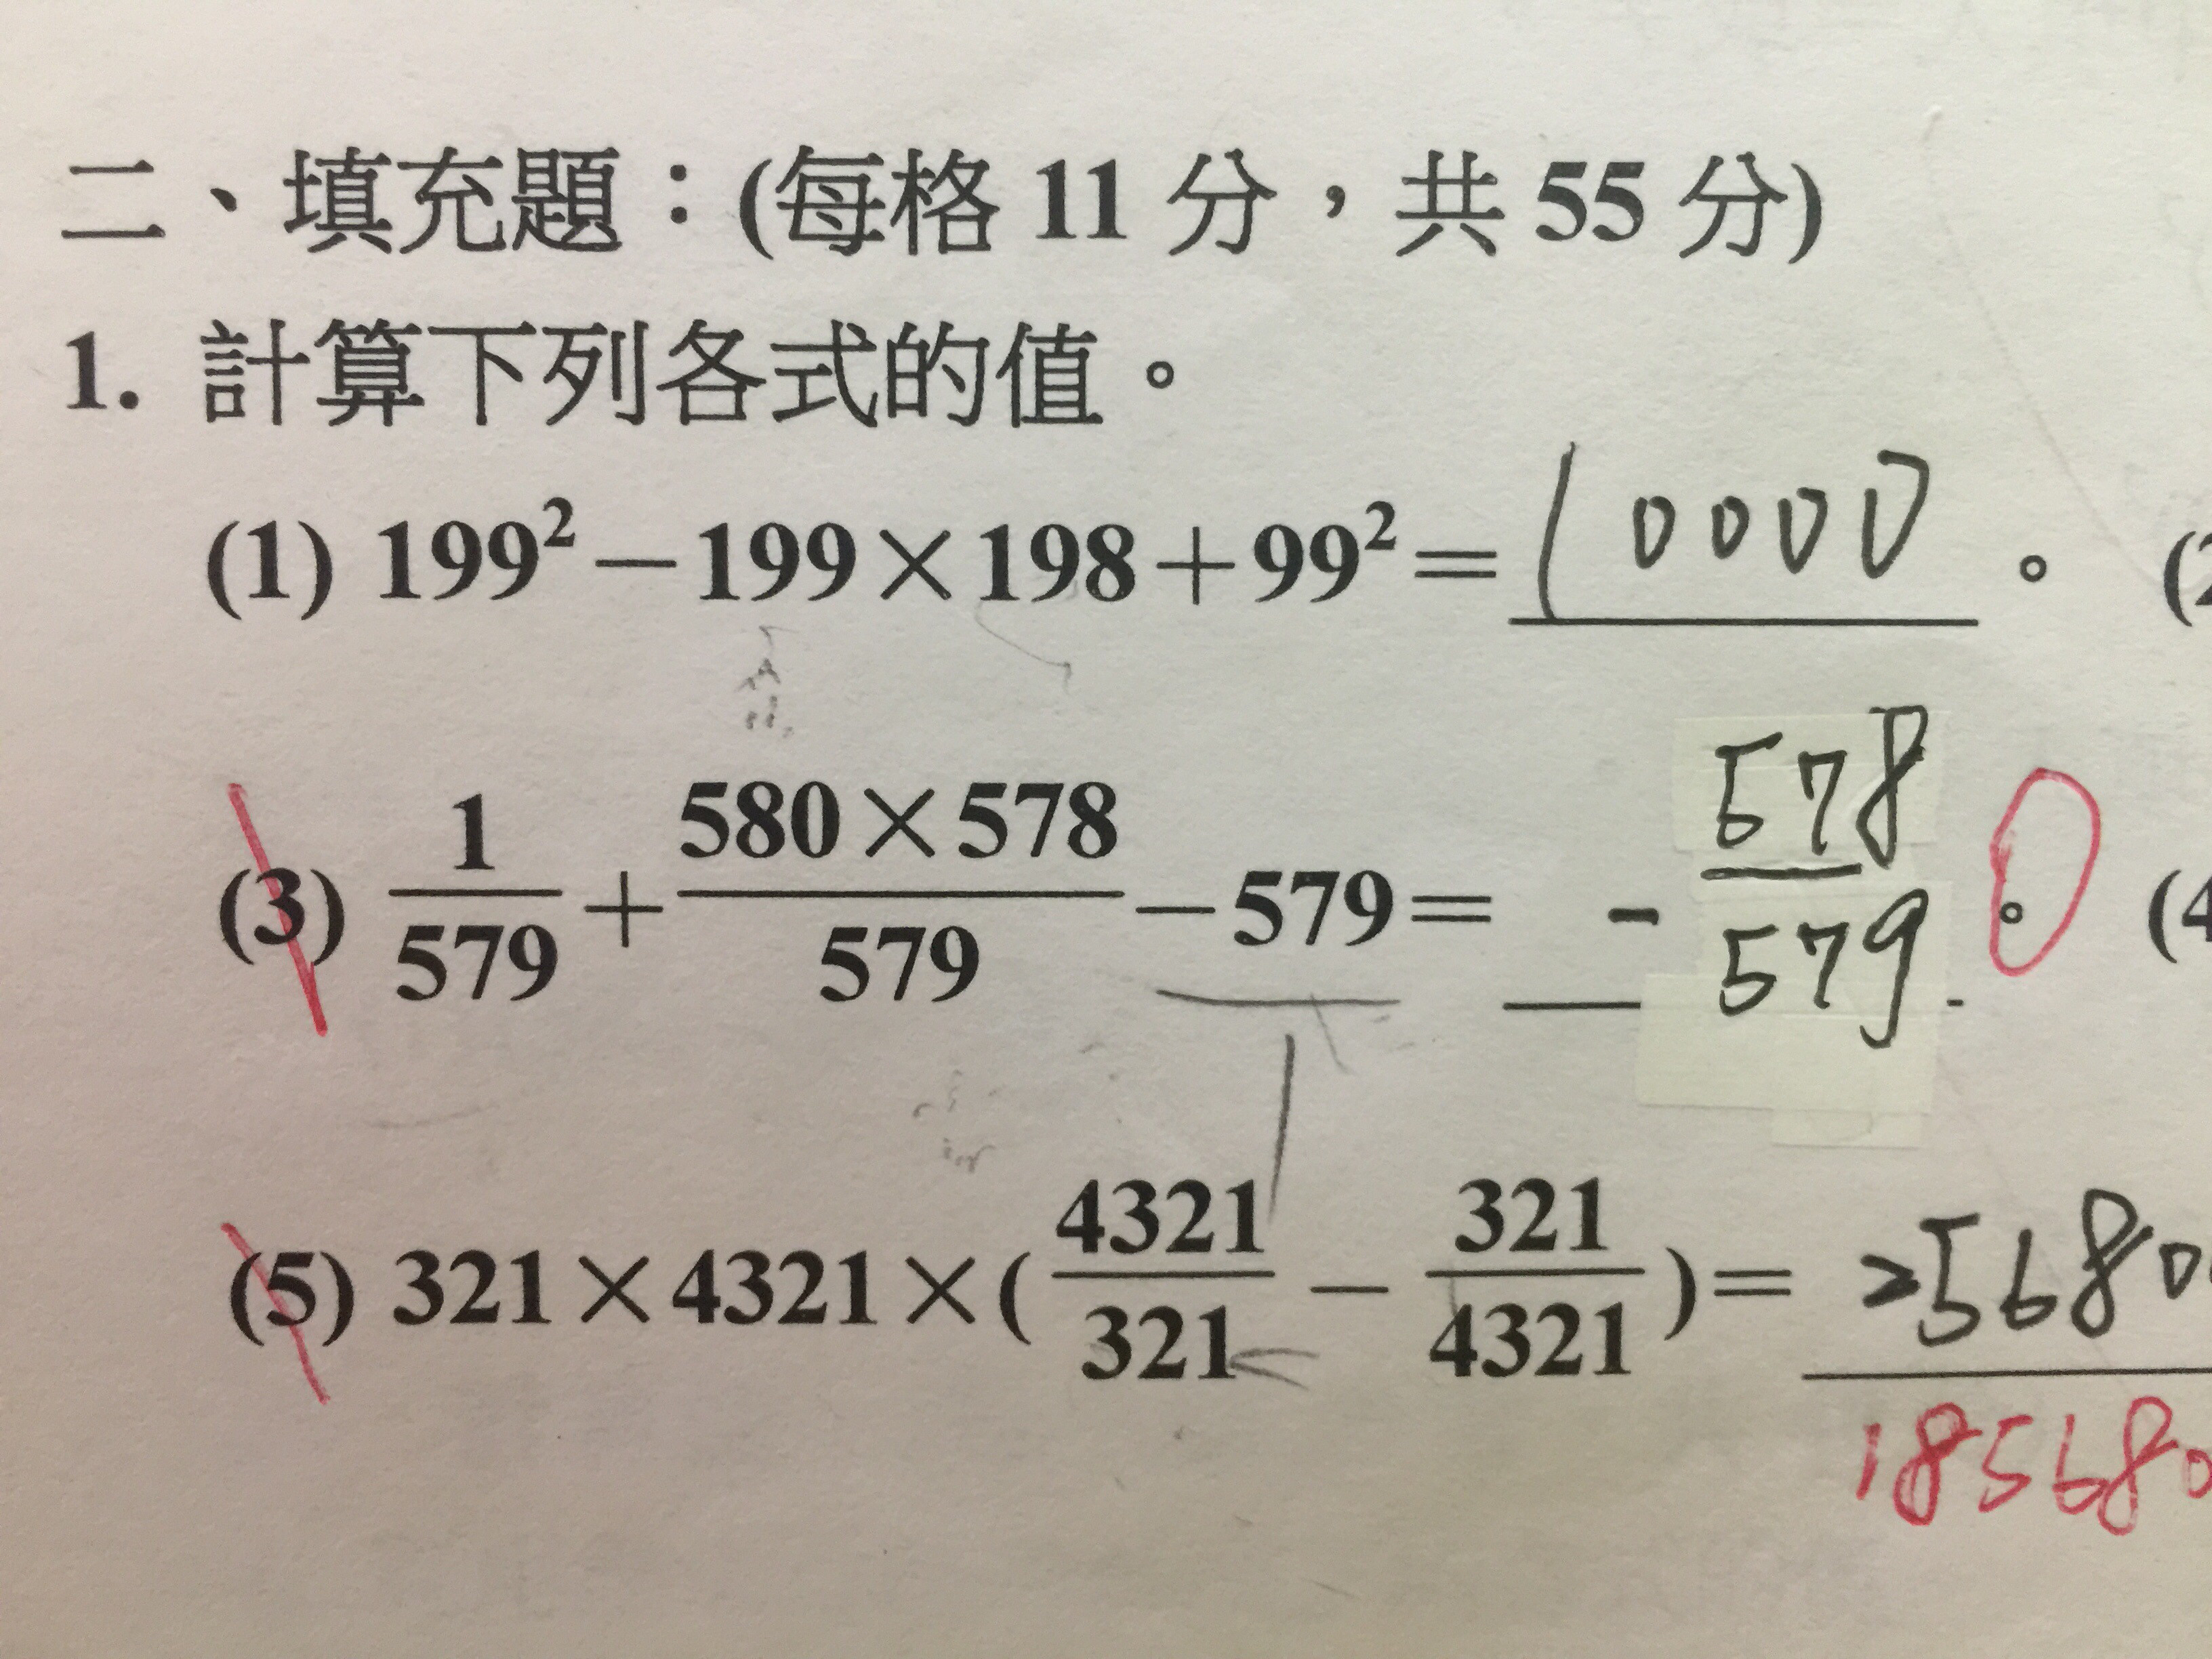 二、填充題：(每格 11 分，共 55 分)
1. 計算下列各式的值。
(1) 199² − 199 × 198 + 99² = 10000 。 (2
(3) 1/579 + 580 × 578/579 − 579 = - 578/579 。 (4
(5) 321 × 4321 × ( 4321/321 − 321/4321 ) = 25680
185680